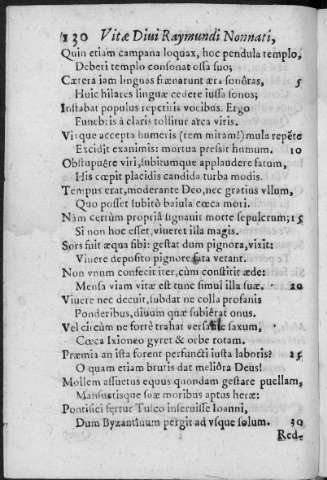 130 Vitæ Diui Raymundi Nonnati,
Quin etiam campana loquax, hoc pendula templo,
Deberi templo consonat ossa suo;
Cætera iam linguas frænarunt æra sonôras, 5
Huic hilares linguæ cedere iussa sonos;
Instabat populus repetitis vocibus. Ergo
Funebris à claris tollitur arca viris.
Vtque accepta humeris (rem miram!) mula repẽte
Excidit exanimis: mortua presıt humum. 10
Obstupuêre viri, subitumque applaudere fatum,
His cœpit placidis candida turba modis.
Tempus erat, moderante Deo, nec gratius vllum,
Quo posset subitò baiula cœca mori.
Nam certùm propriâ signauit morte sepulcrum; 15
Si non hoc esset, viueret illa magis.
Sors fuit æqua sibi: gestat dum pignora, vixit:
Viuere deposito pignore fata vetant.
Non vnum confecit iter, cùm constitit æde:
Mensa viam vitæ est tunc simul illa suæ. 20
Viuere nec decuit, subdat ne colla profanis
Ponderibus, diuum quæ subiêrat onus.
Vel circùm ne fortè trahat versatile saxum,
Cœca Ixioneo gyret & orbe rotam.
Præmia an ista forent perfuncti iusta laboris? 25
O quam etiam brutis dat meliora Deus!
Mollem assuetus equus quondam gestare puellam,
Mansuetisque suæ moribus aptus heræ:
Pontifici fertur Tusco inseruisse Ioanni,
Dum Byzantinum pergit ad vsque solum. 30
Red-